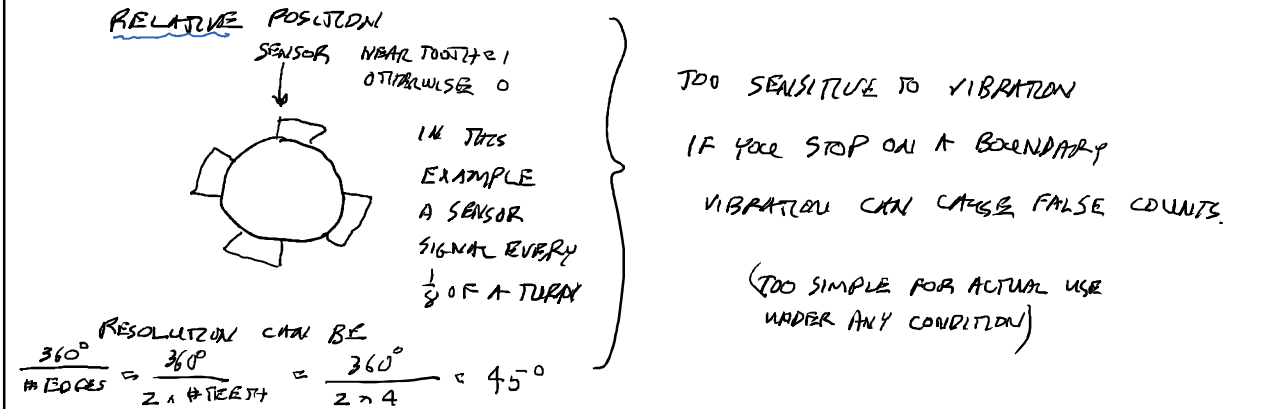 RELATIVE POSITION
SENSOR NEAR TOOTH = 1
OTHERWISE 0
IN THIS
EXAMPLE
A SENSOR
SIGNAL EVERY
1/8 OF A TURN
RESOLUTION CAN BE
360° / # EDGES = 360° / 2 x # TEETH = 360° / 2 x 4 = 45°
TOO SENSITIVE TO VIBRATION
IF YOU STOP ON A BOUNDARY
VIBRATION CAN CAUSE FALSE COUNTS.
(TOO SIMPLE FOR ACTUAL USE
UNDER ANY CONDITION)